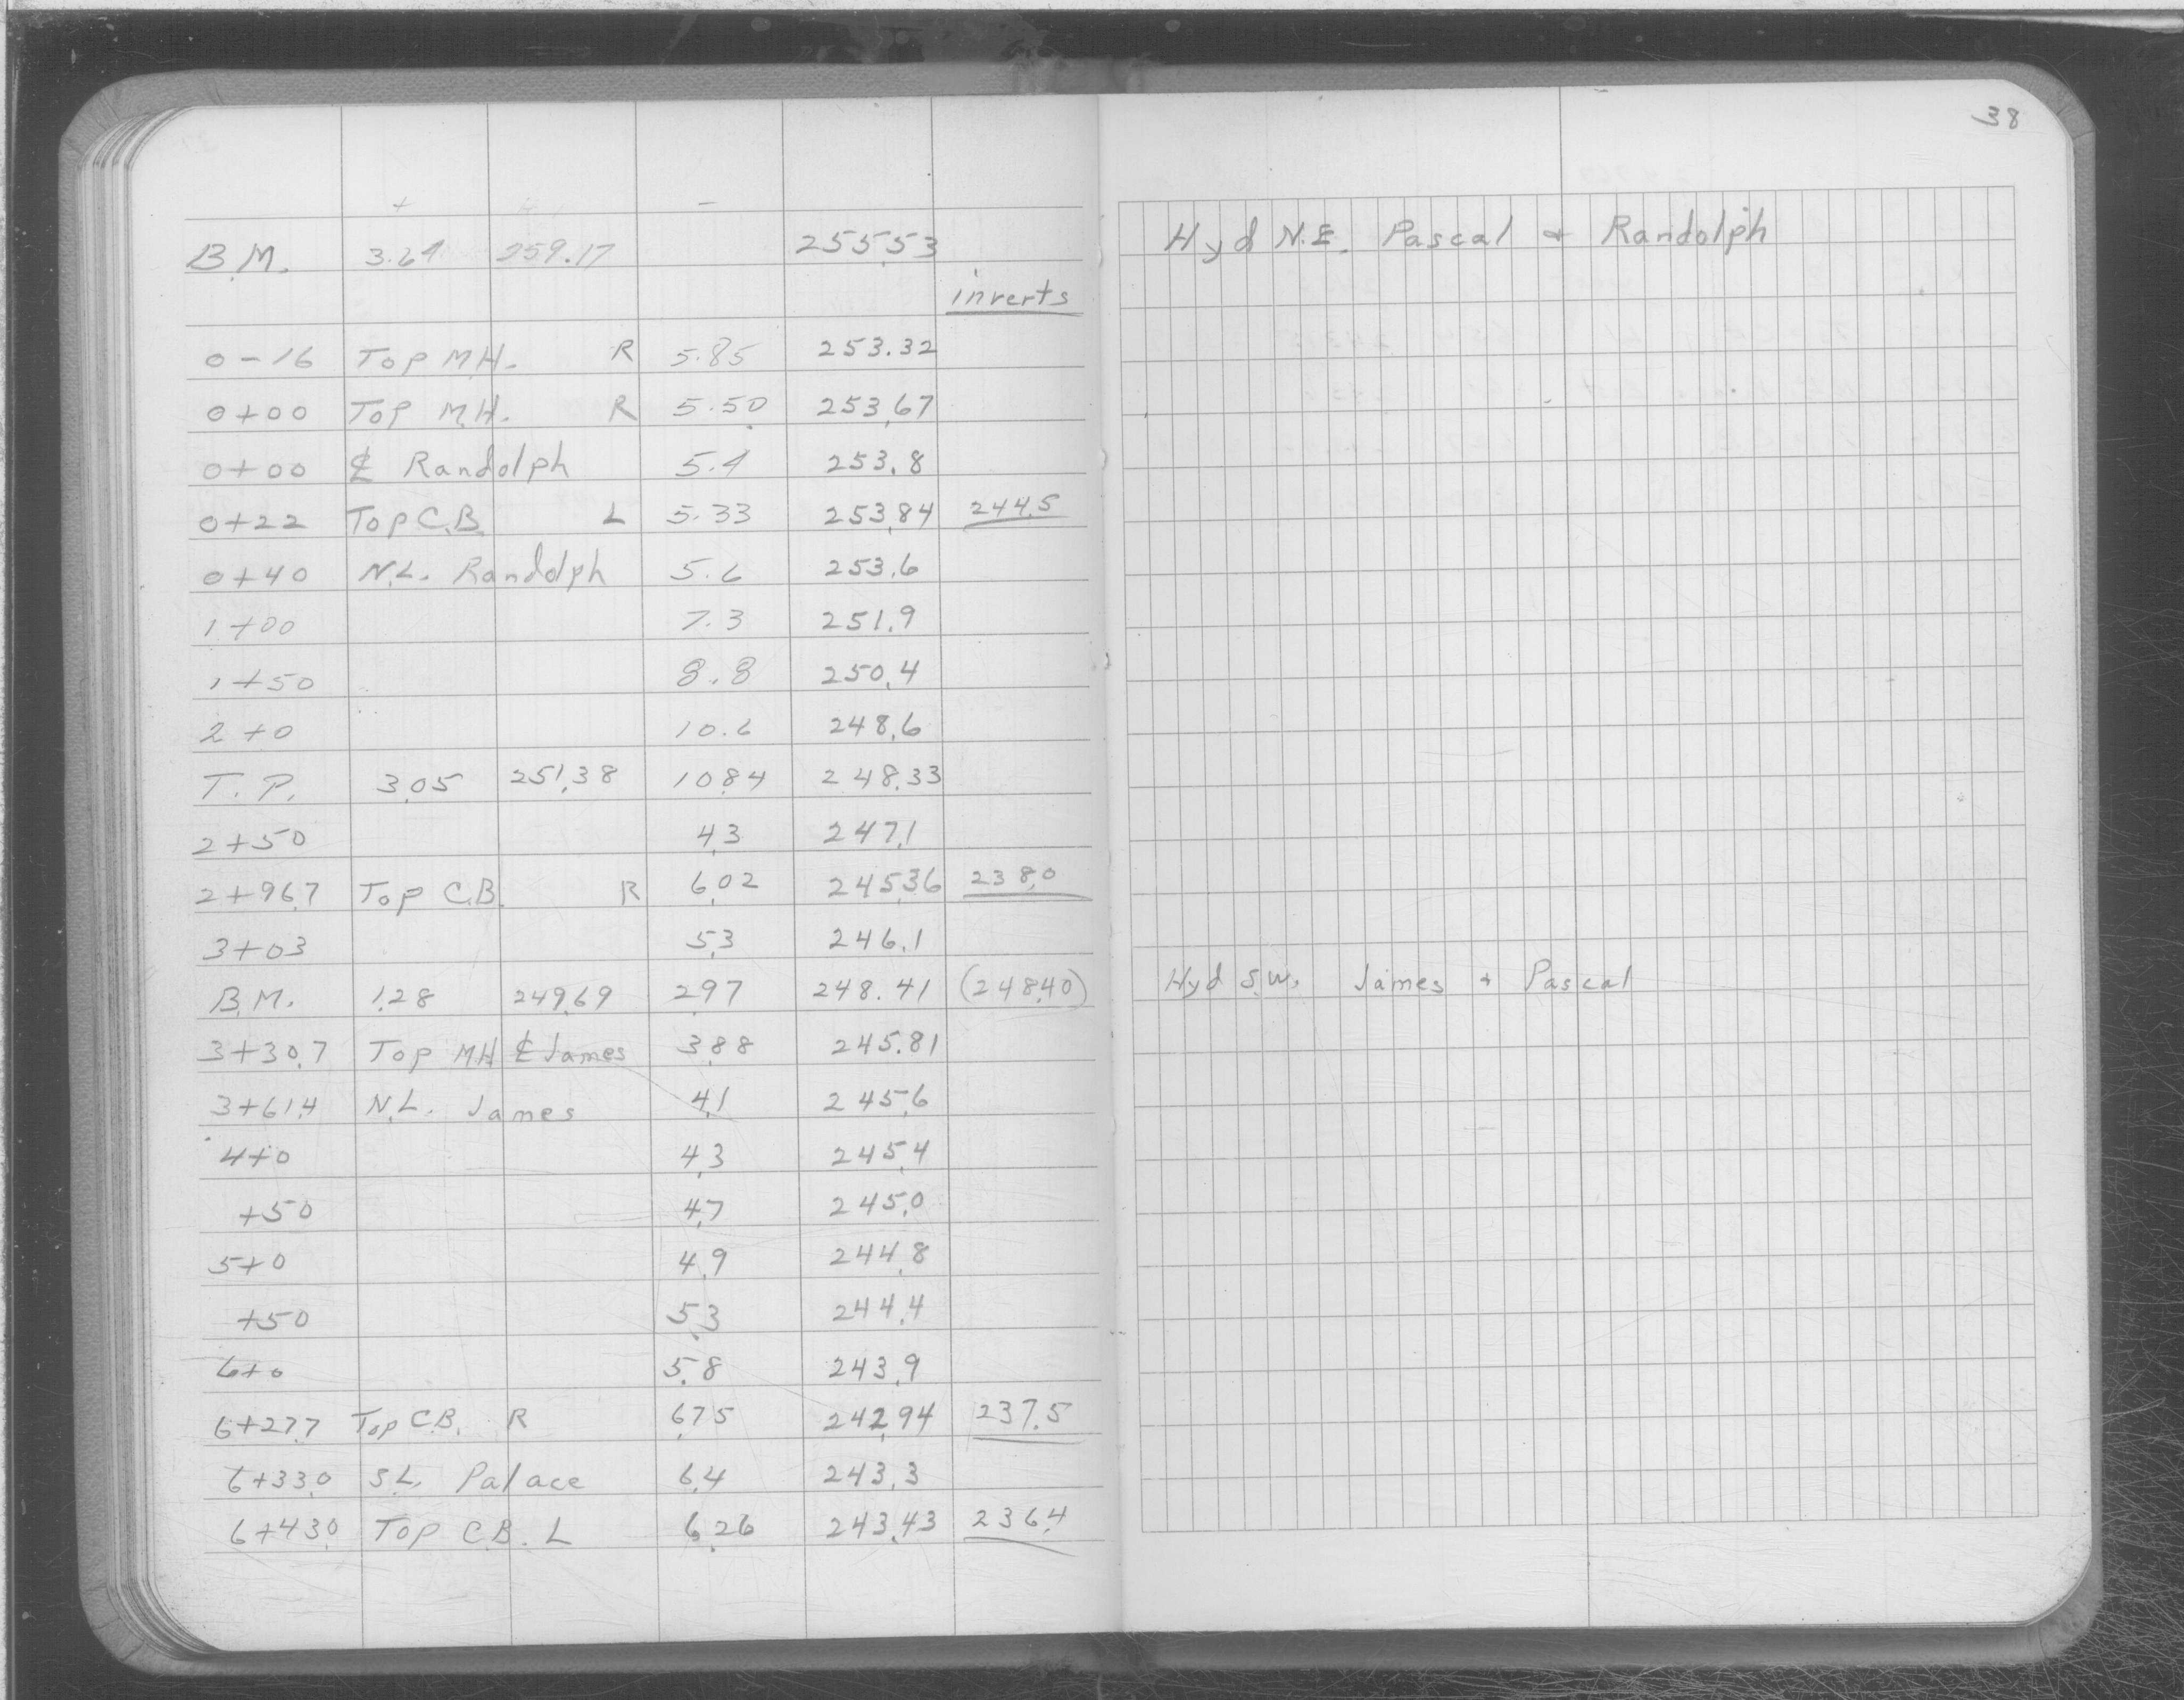 38
+ H.I. -
B.M. 3.64 259.17 255.53 Hyd N.E. Pascal + Randolph
inverts
0-16 Top M.H. R 5.85 253.32
0+00 Top M.H. R 5.50 253.67
0+00 ℄ Randolph 5.4 253.8
0+22 Top C.B. L 5.33 253.84 244.5
0+40 N.L. Randolph 5.6 253.6
1+00 7.3 251.9
1+50 8.8 250.4
2+0 10.6 248.6
T.P. 3.05 251.38 10.84 248.33
2+50 4.3 247.1
2+96.7 Top C.B. R 6.02 245.36 238.0
3+03 5.3 246.1
B.M. 1.28 249.69 2.97 248.41 (248.40) Hyd S.W. James + Pascal
3+30.7 Top MH ℄ James 3.88 245.81
3+61.4 N.L. James 4.1 245.6
4+0 4.3 245.4
+50 4.7 245.0
5+0 4.9 244.8
+50 5.3 244.4
6+0 5.8 243.9
6+27.7 Top C.B. R 6.75 242.94 237.5
6+33.0 S.L. Palace 6.4 243.3
6+43.0 Top C.B. L 6.26 243.43 236.4